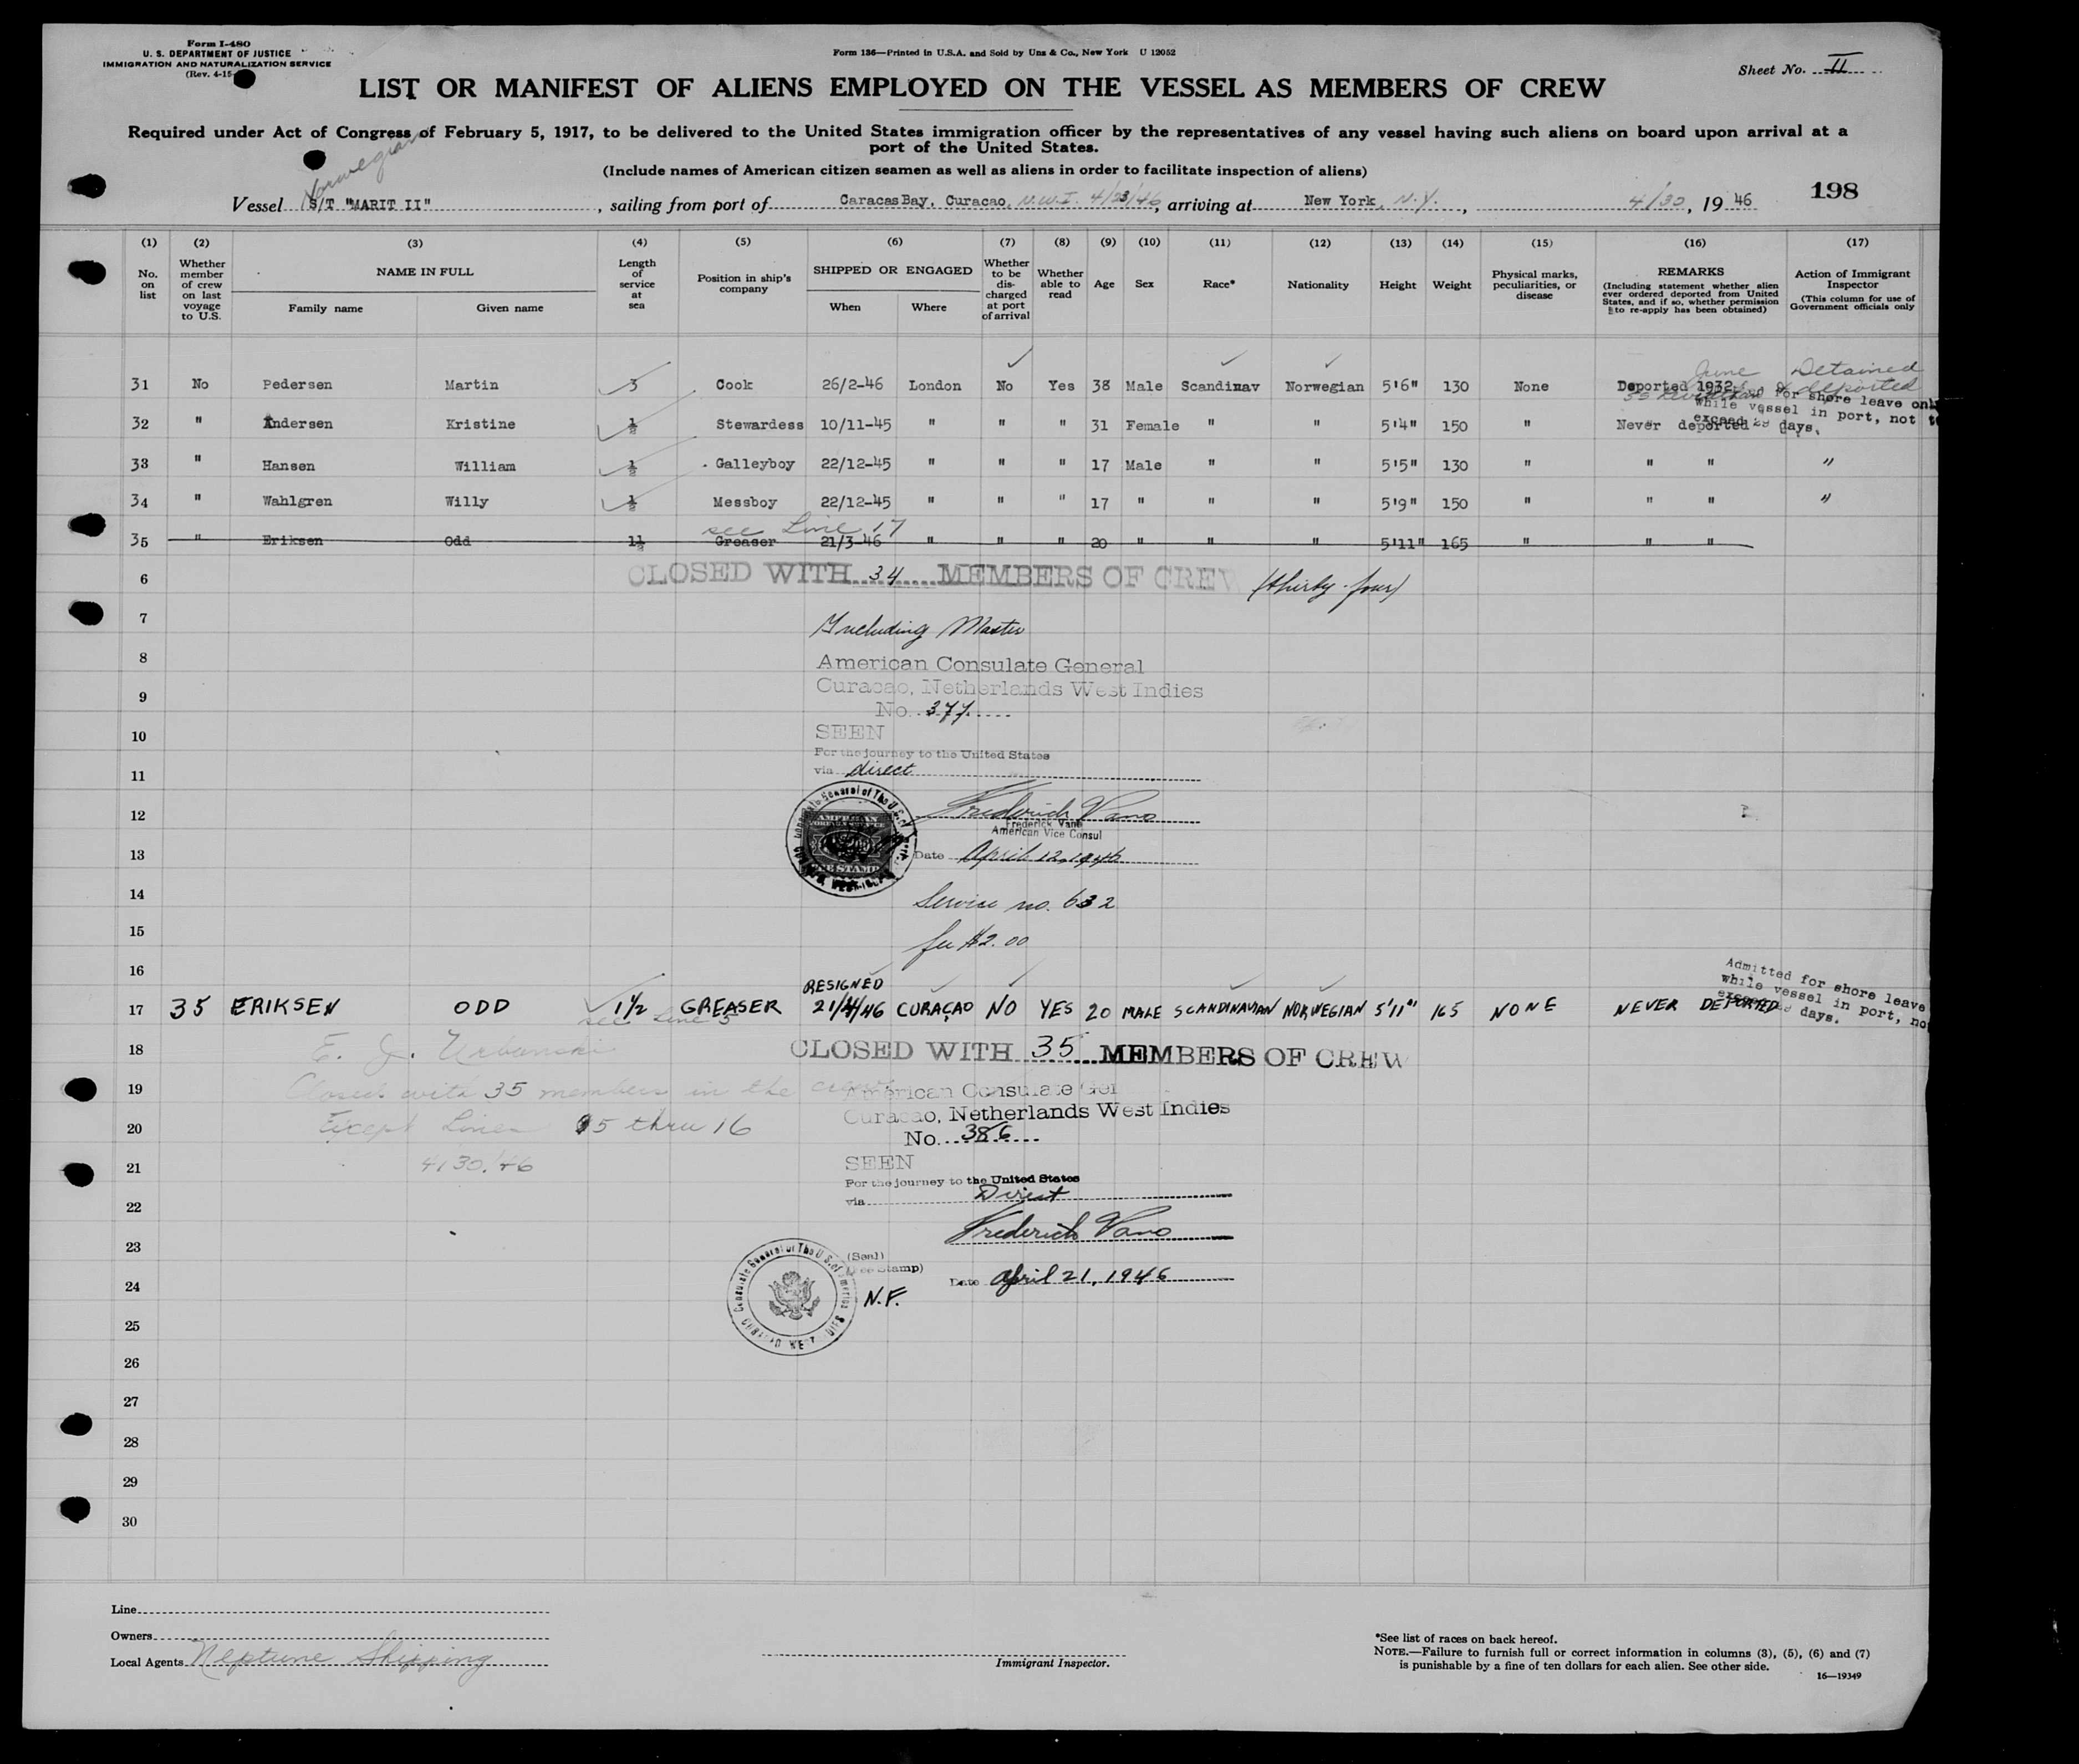 Form I-480
U. S. DEPARTMENT OF JUSTICE
IMMIGRATION AND NATURALIZATION SERVICE
(Rev. 4-15-
Form 136—Printed in U.S.A. and Sold by Unz & Co., New York U 12052
Sheet No. II
LIST OR MANIFEST OF ALIENS EMPLOYED ON THE VESSEL AS MEMBERS OF CREW
Required under Act of Congress of February 5, 1917, to be delivered to the United States immigration officer by the representatives of any vessel having such aliens on board upon arrival at a
port of the United States.
(Include names of American citizen seamen as well as aliens in order to facilitate inspection of aliens)
Norwegian
Vessel S/T "MARIT II", sailing from port of CaracasBay, Curacao, N.W.I. 4/23/46, arriving at New York, N.Y., 4/30, 19 46
198
(1) (2) (3) (4) (5) (6) (7) (8) (9) (10) (11) (12) (13) (14) (15) (16) (17)
No. on list
Whether member of crew on last voyage to U.S.
NAME IN FULL
Family name Given name
Length of service at sea
Position in ship's company
SHIPPED OR ENGAGED
When Where
Whether to be discharged at port of arrival
Whether able to read
Age
Sex
Race*
Nationality
Height
Weight
Physical marks, peculiarities, or disease
REMARKS
(Including statement whether alien ever ordered deported from United States, and if so, whether permission to re-apply has been obtained)
Action of Immigrant Inspector
(This column for use of Government officials only
June Detained
31 No Pedersen Martin 3 Cook 26/2-46 London No Yes 38 Male Scandinav Norwegian 5'6" 130 None Deported 1932 deported
for shore leave only
while vessel in port, not to
exceed 29 days.
32 " Andersen Kristine ½ Stewardess 10/11-45 " " " 31 Female " " 5'4" 150 " Never deported
33 " Hansen William ½ Galleyboy 22/12-45 " " " 17 Male " " 5'5" 130 " " " "
34 " Wahlgren Willy ½ Messboy 22/12-45 " " " 17 " " " 5'9" 150 " " " "
see Line 17
35 " Eriksen Odd 1½ Greaser 21/3-46 " " " 20 " " " 5'11" 165 " " "
6 CLOSED WITH 34 MEMBERS OF CREW (thirty-four)
7 Including Master
8 American Consulate General
9 Curacao, Netherlands West Indies
No. 377
10 SEEN
For the journey to the United States
11 via direct
12 Frederick Vano
Frederick Vano
American Vice Consul
13 Date April 12, 1946
14 Service no. 632
15 fee $2.00
16
RESIGNED
17 35 ERIKSEN ODD 1½ GREASER 21/4/46 CURAÇAO NO YES 20 MALE SCANDINAVIAN NORWEGIAN 5'11" 165 NONE NEVER DEPORTED
see Line 5
Admitted for shore leave
while vessel in port, not
exceed days.
18 E. J. Urbanski CLOSED WITH 35 MEMBERS OF CREW
19 Closed with 35 members in the crew
American Consulate Gen
Curacao, Netherlands West Indies
20 Except Lines 5 thru 16
No. 386
21 4/30/46
SEEN
For the journey to the United States
22 via Direct
23 Frederick Vano
(Seal)
(Fee Stamp)
24 N.F. Date April 21, 1946
25
26
27
28
29
30
Line
Owners
Local Agents Neptune Shipping
Immigrant Inspector.
*See list of races on back hereof.
NOTE.—Failure to furnish full or correct information in columns (3), (5), (6) and (7)
is punishable by a fine of ten dollars for each alien. See other side.
16—19349